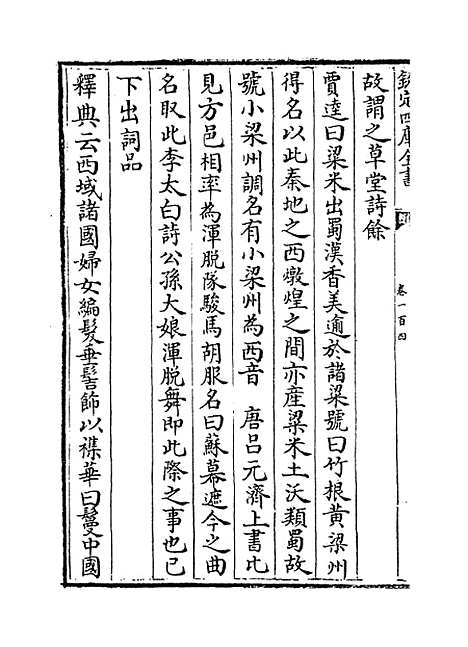 欽定四庫全書
卷一百四
故謂之草堂詩餘
賈逵曰粱米出蜀漢香美逾於諸粱號曰竹根黃梁州
得名以此秦地之西燉煌之間亦産粱米土沃類蜀故
號小梁州調名有小梁州為西音　唐吕元濟上書比
見方邑相率為渾脱隊駿馬胡服名曰蘇幕遮今之曲
名取此李太白詩公孫大娘渾脱舞即此際之事也已
下出詞品
釋典云西域諸國婦女編髮垂髻飾以襍華曰鬘中國